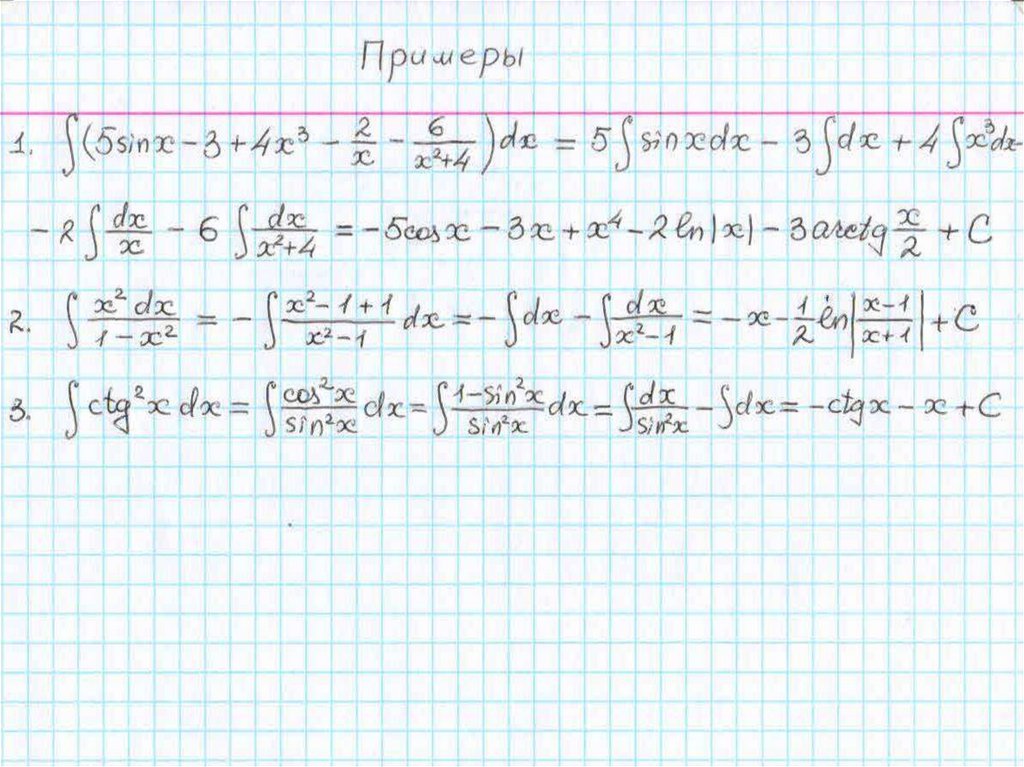 Примеры
1. ∫(5sinx − 3 + 4x³ − 2/x − 6/(x²+4))dx = 5∫sinxdx − 3∫dx + 4∫x³dx−
− 2∫dx/x − 6∫dx/(x²+4) = −5cosx − 3x + x⁴ − 2ln|x| − 3arctg x/2 + C
2. ∫x²dx/(1−x²) = −∫(x²−1+1)/(x²−1) dx = −∫dx − ∫dx/(x²−1) = −x − 1/2 ln|(x−1)/(x+1)| + C
3. ∫ctg²x dx = ∫cos²x/sin²x dx = ∫(1−sin²x)/sin²x dx = ∫dx/sin²x − ∫dx = −ctgx − x + C